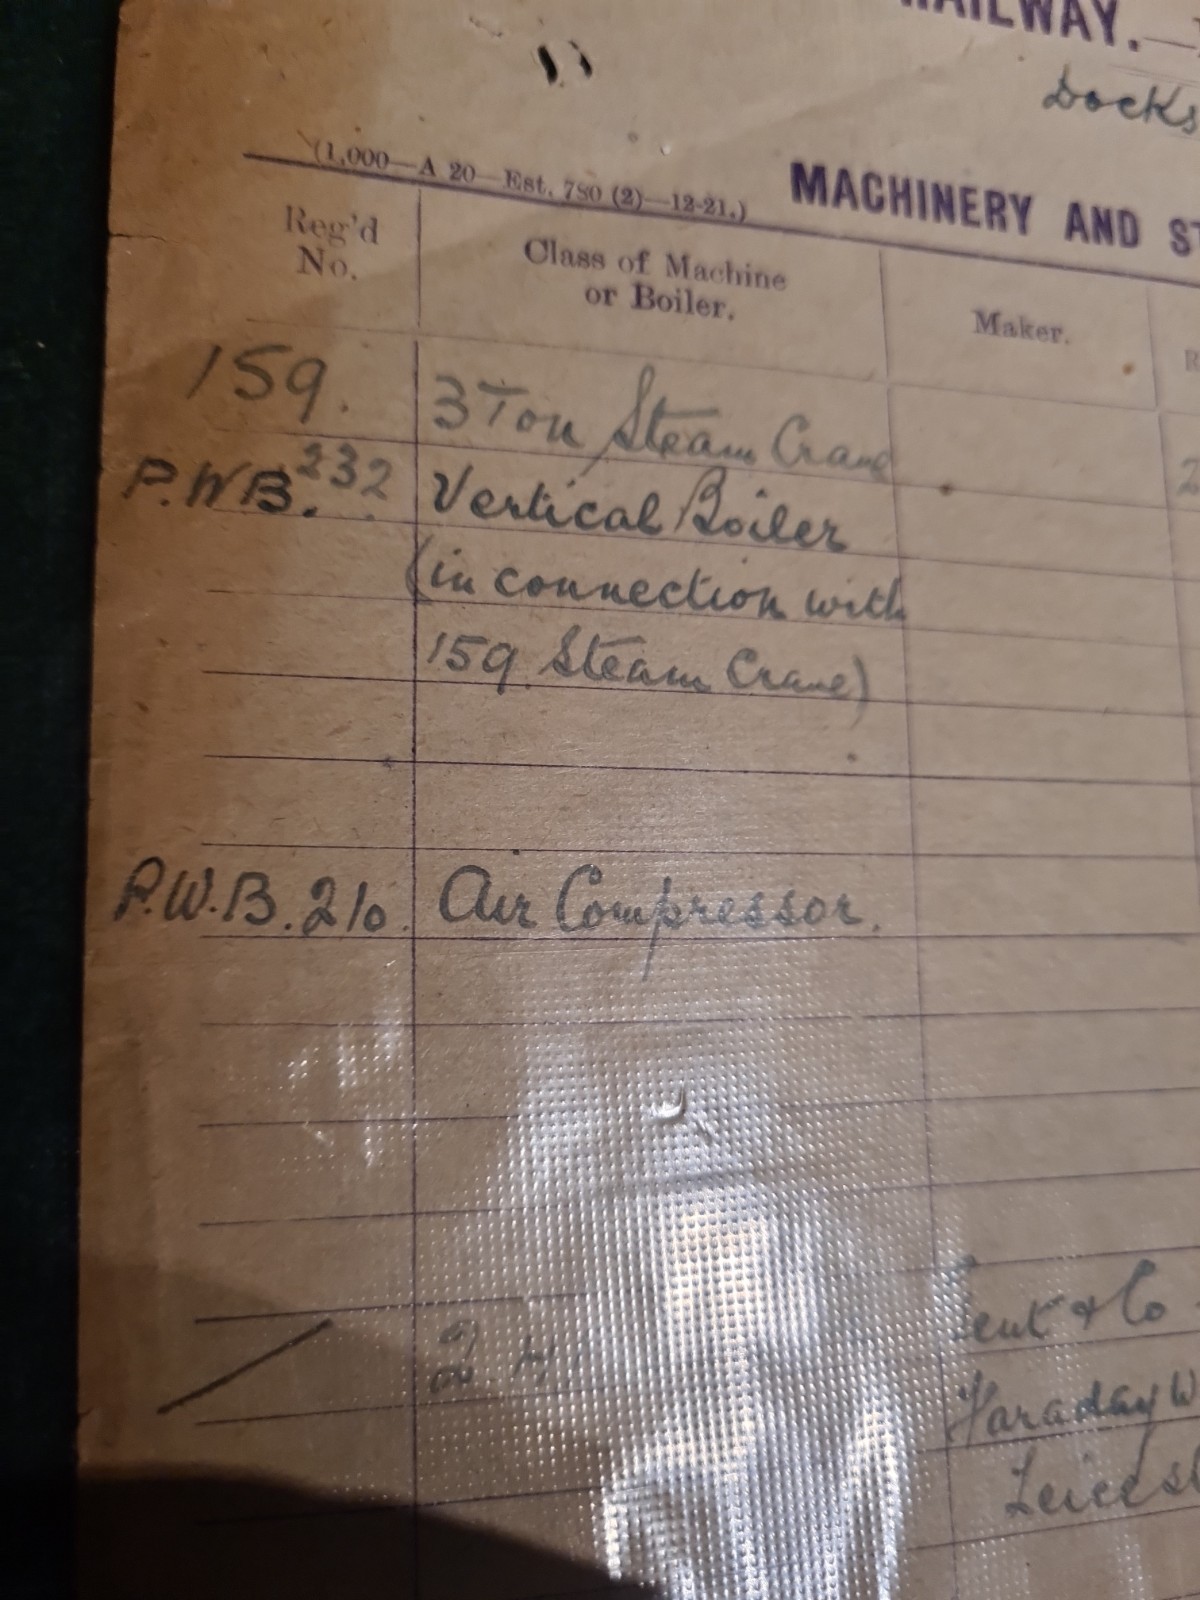 RAILWAY.—
Docks
(1,000—A 20—Est. 780 (2)—12-21.)
MACHINERY AND ST
Reg'd
No.
Class of Machine
or Boiler.
Maker.
R
159. 3 Ton Steam Crane 2
P.W.B. 232 Vertical Boiler
(in connection with
159 Steam Crane)
P.W.B. 210. Air Compressor.
Gent & Co
Faraday W
Leicest